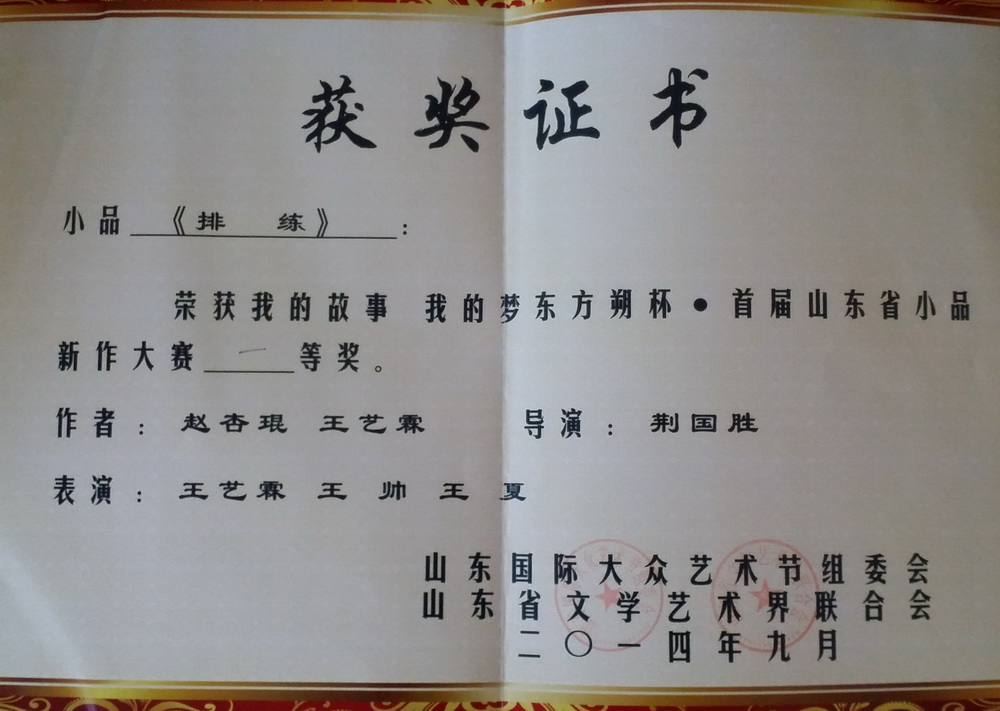 获奖证书
小品 《排 练》 :
荣获我的故事 我的梦东方朔杯●首届山东省小品
新作大赛 一 等奖。
作者: 赵杏琨 王艺霖 导演: 荆国胜
表演: 王艺霖 王 帅 王 夏
山东国际大众艺术节组委会
山东省文学艺术界联合会
二〇一四年九月